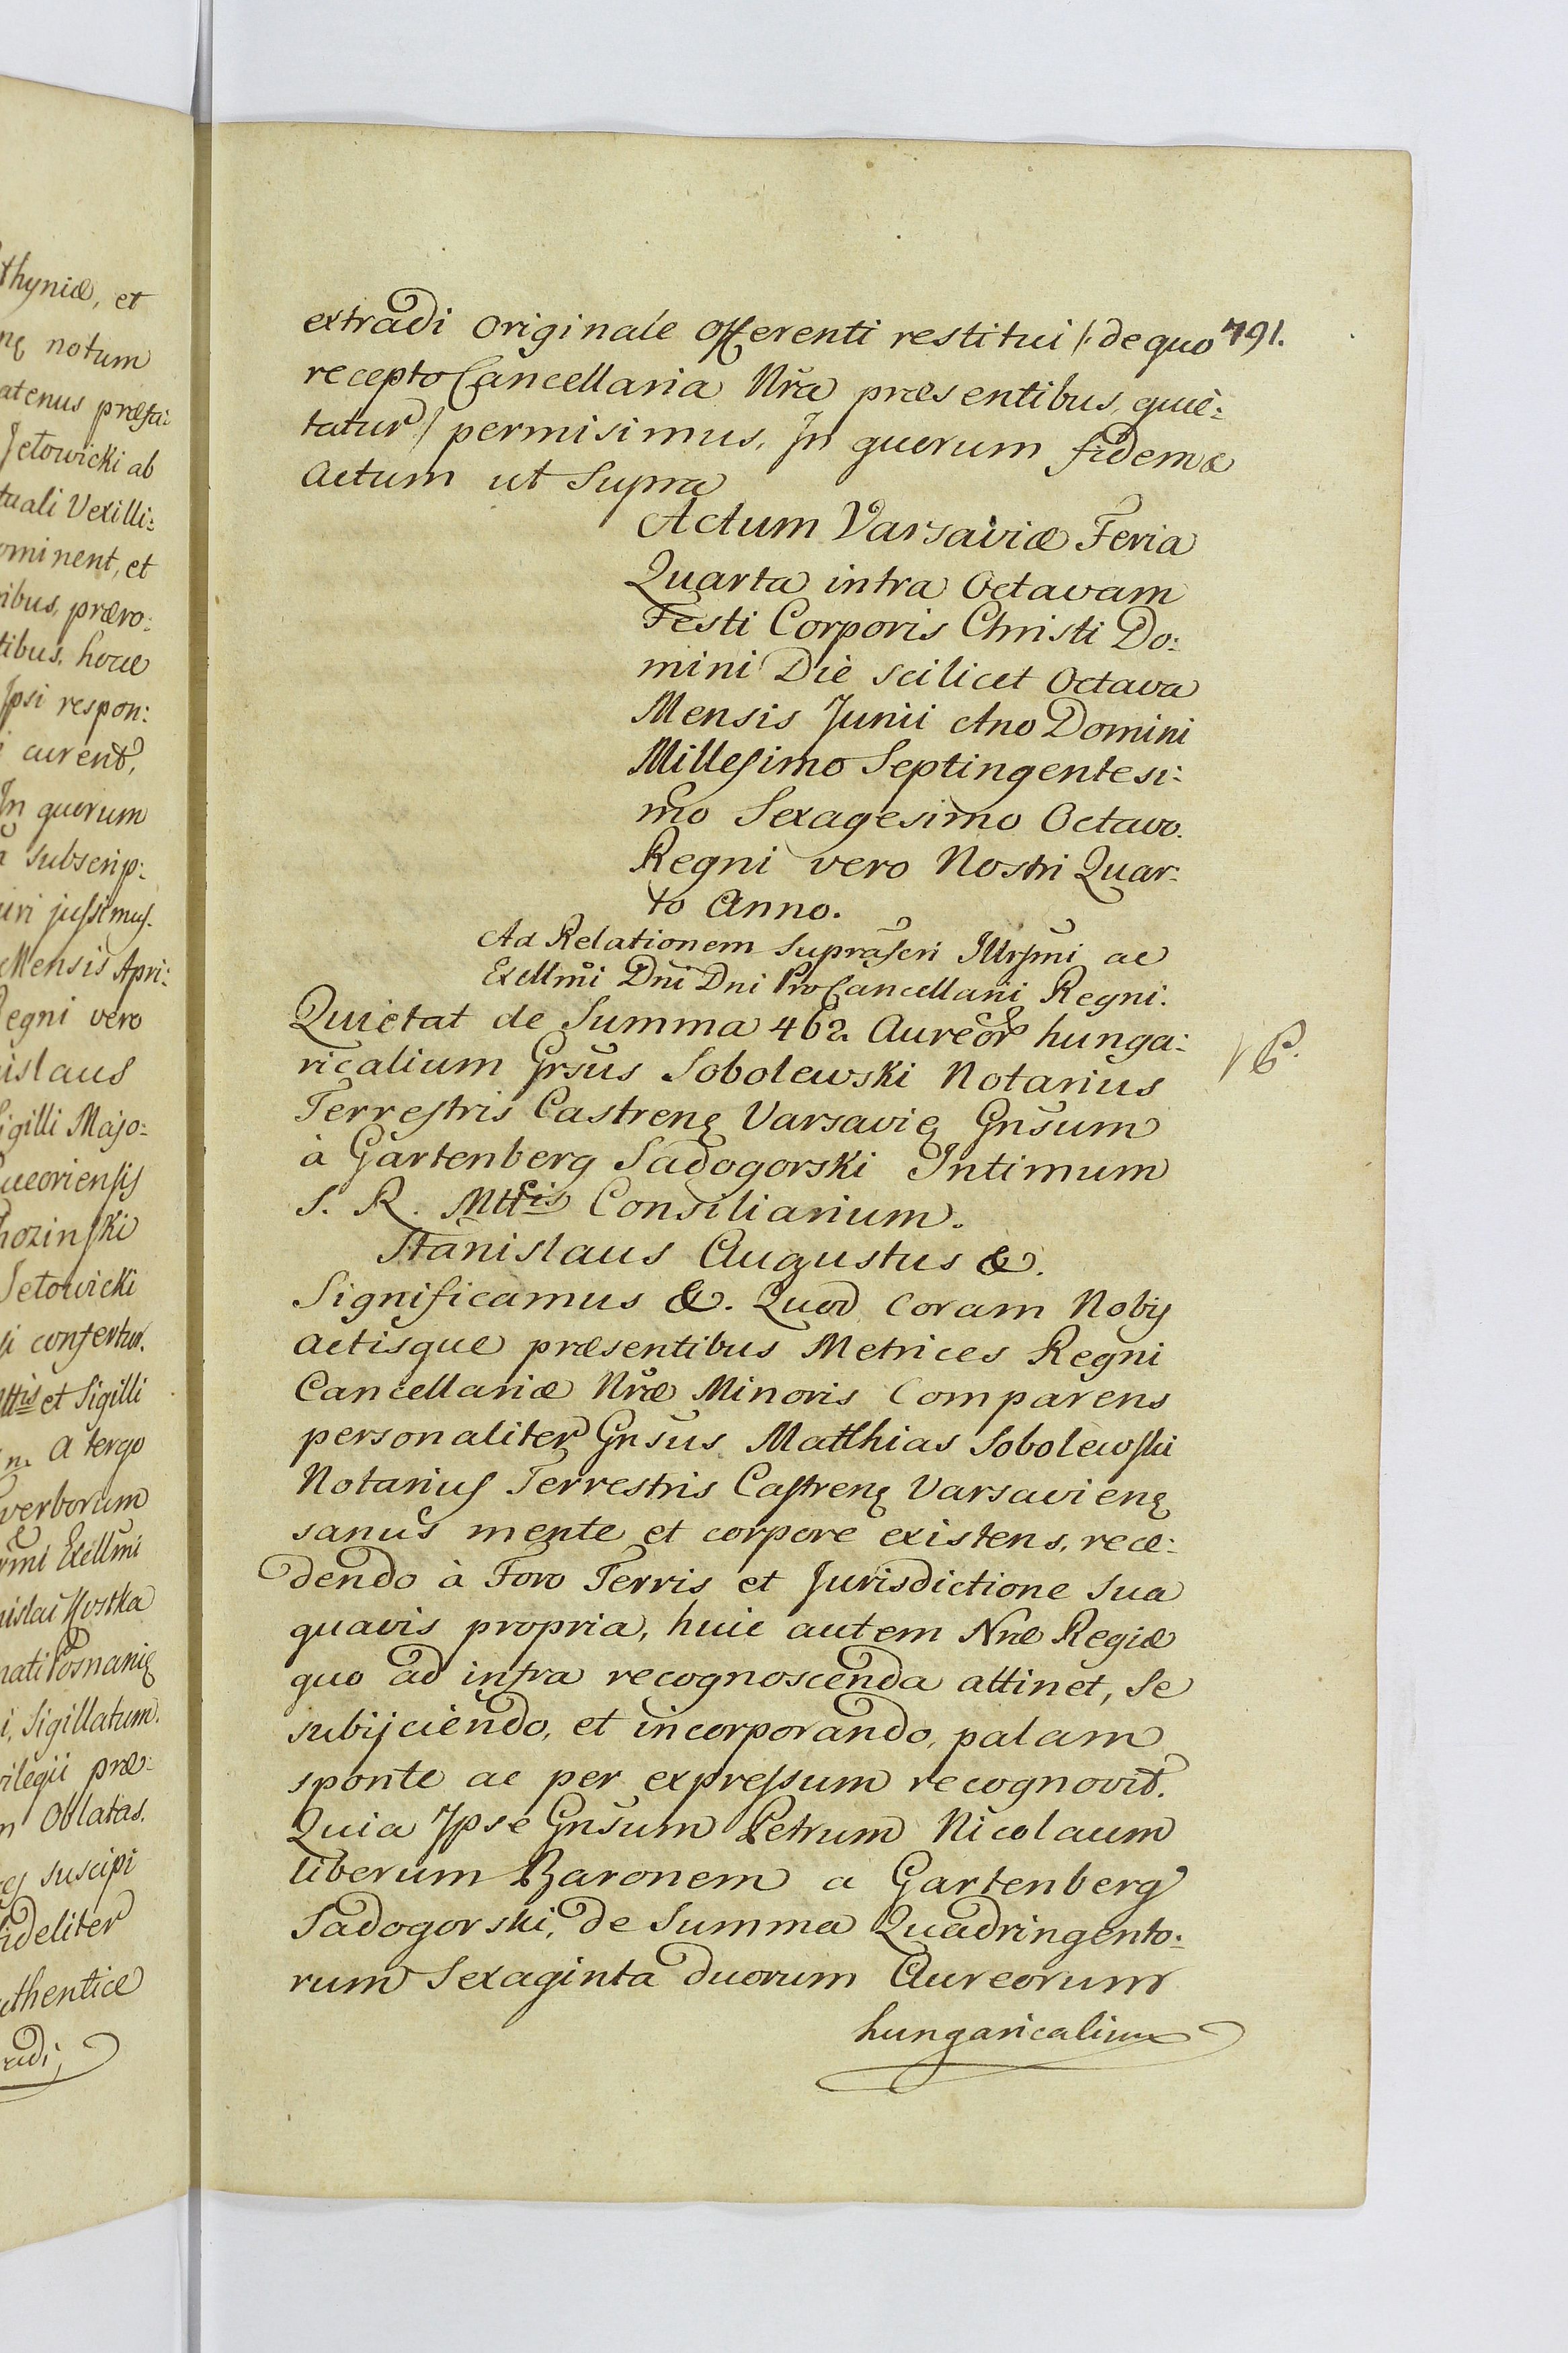 thyniæ, et
nę notum
atenus præsa:
Jetowicki ab
tuali Vexilli:
ominent, et
ribus, præro:
tibus, hocce
Ipsi respon:
i curent,
In quorum
a subscrip:
uri jussimus.
Mensis Apri:
Regni vero
islaus
Sigilli Majo:
uceoriensis
hozinski
Jetowicki
si confertur.
Mttis et Sigilli
m. A tergo
verborum
rm̃i Exellm̃i
nislai Kostka
nati Posnanię
i, Sigillatum.
vilegii præ:
m Oblatas.
es suscipi
fideliter
uthentice
radi,
791.
extradi originale offerenti restitui /: de quo
recepto Cancellaria Nr̃a præsentibus, quie:
tatur :/ permisimus. In quorum fidem &
Actum ut Supra
Actum Varsaviæ Feria
Quarta intra Octavam
Festi Corporis Christi Do:
mini Die scilicet Octava
Mensis Junii Ano Domini
Millesimo Septingentesi:
mo Sexagesimo Octavo.
Regni vero Nostri Quar:
to Anno.
Ad Relationem suprascri Illrsmi ac
Exellm̃i Dn̄i Dni ProCancellarii Regni.
Quietat de Summa 462. Aureor hunga:
ricalium Grsus Sobolewski Notarius
Terrestris Castrenę Varsavię Gn̄sum
à Gartenberg Sadogorski Intimum
S. R. Mttis Consiliarium.
Stanislaus Augustus &.
Significamus &. Quod coram Nobis
actisque præsentibus Metrices Regni
Cancellariæ Nr̃æ Minoris Comparens
personaliter Gn̄sus Matthias Sobolewski
Notarius Terrestris Castrenę Varsavienę
sanus mente et corpore existens, rece:
dendo à Foro Terris et Jurisdictione sua
quavis propria, huic autem Nræ Regiæ
quo ad infra recognoscenda attinet, se
subijciendo, et incorporando, palam
sponte ac per expressum recognovit.
Quia Ipse Gn̄sum Petrum Nicolaum
liberum Baronem a Gartenberg
Sadogorski, de Summa Quadringento:
rum Sexaginta duorum Aureorum
hungaricalium